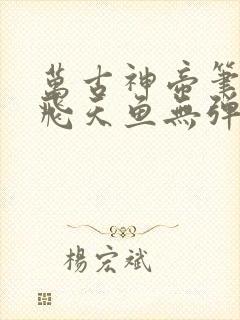 萬古神帝筆
飛天魚無彈
楊宏斌